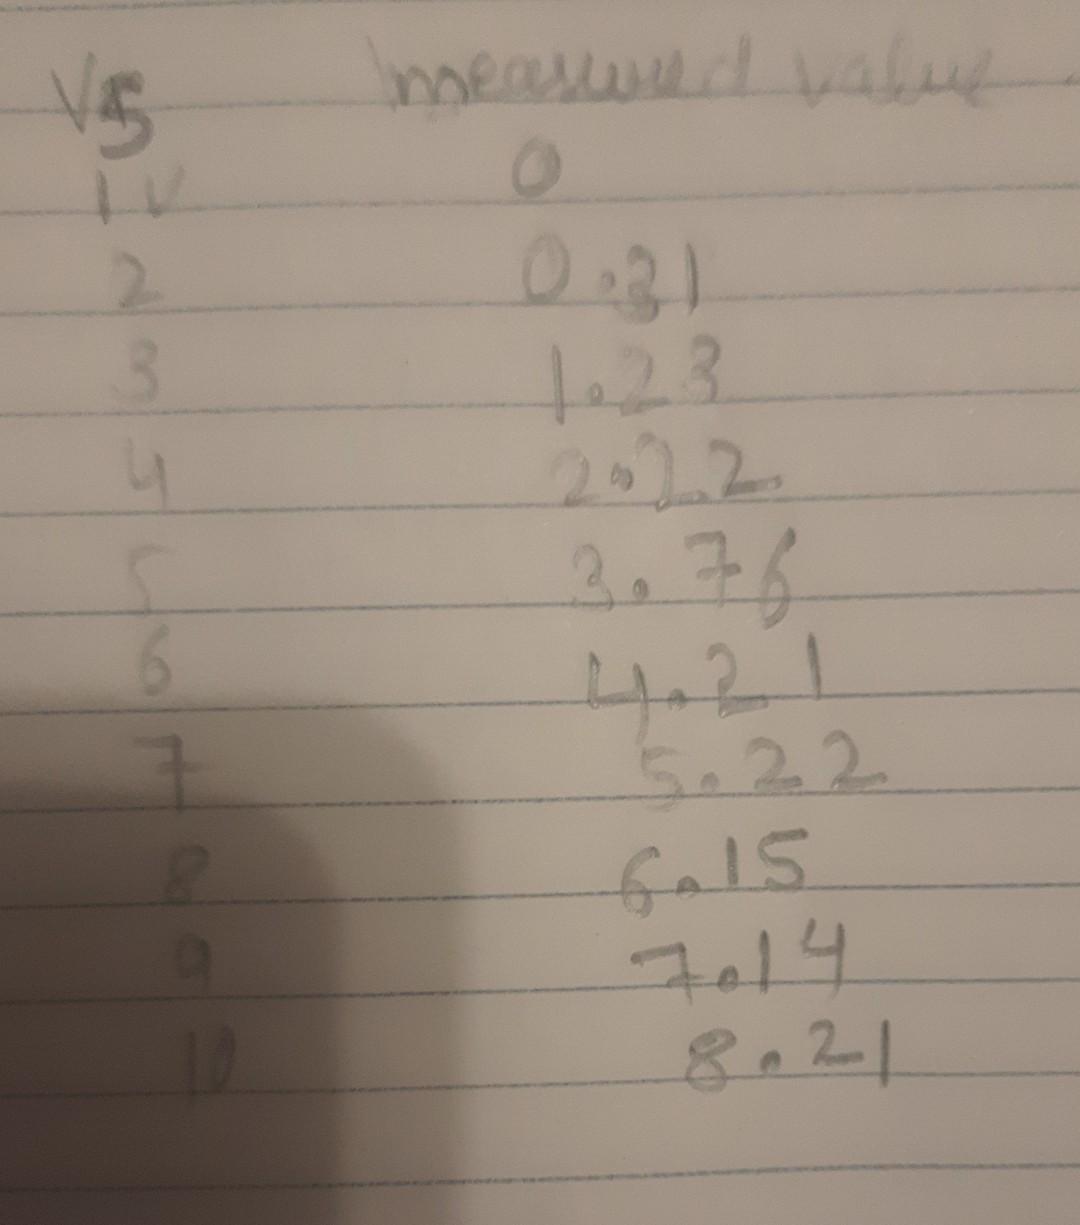 VS Measured value
1 V 0
2 0.31
3 1.23
4 2.22
5 3.76
6 4.21
7 5.22
8 6.15
9 7.14
10 8.21